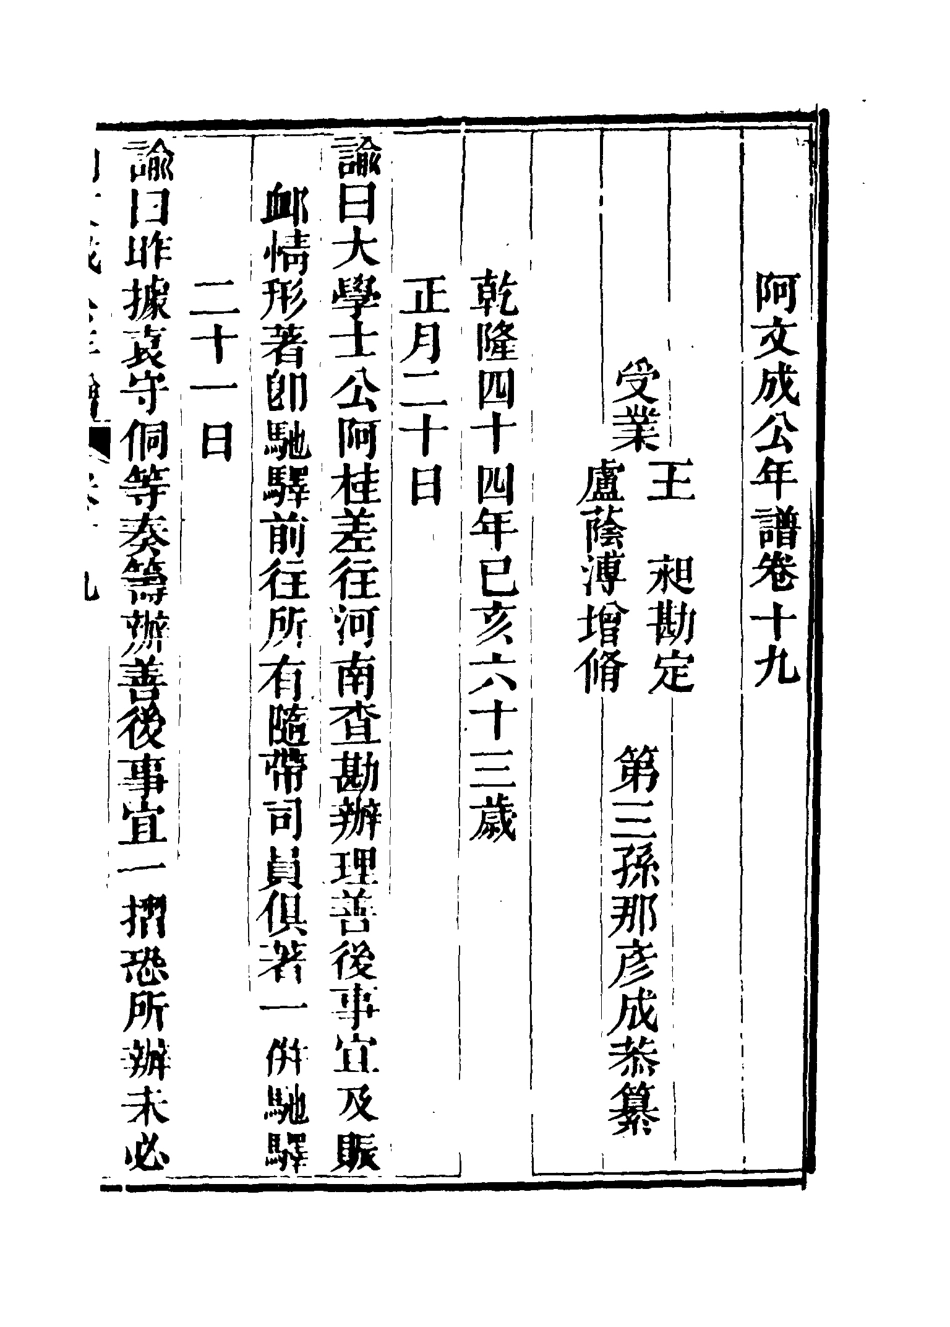 阿文成公年譜卷十九
受業
王　昶勘定
盧蔭溥增脩
第三孫那彥成恭纂
乾隆四十四年已亥六十三歲
正月二十日
諭曰大學士公阿桂差往河南查勘辦理善後事宜及賑
衈情形著卽馳驛前往所有隨帶司員俱著一併馳驛
二十一日
諭曰昨據袁守侗等奏籌辦善後事宜一摺恐所辦未必